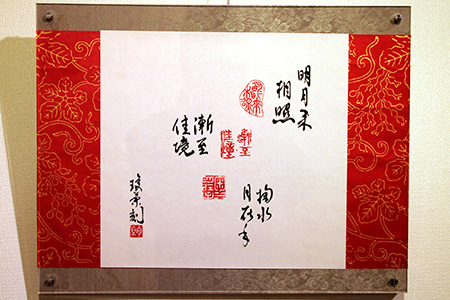 明月来
相照
漸至
佳境
掬水
月在手